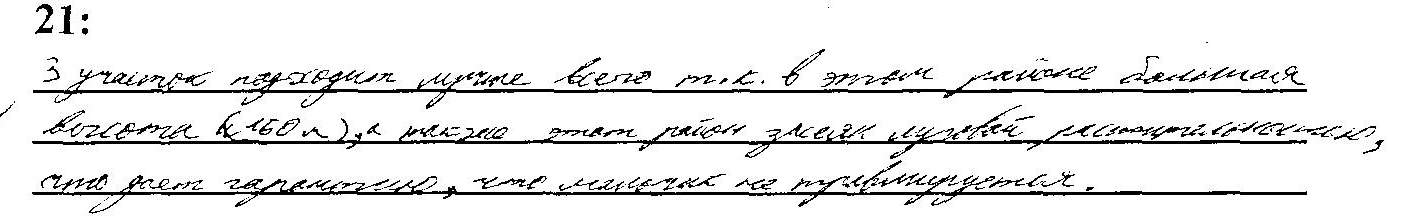 21:
3 участок подходит лучше всего т.к. в этом районе большая
высота (150 м), а также этот район засеян луговой растительностью,
что дает гарантию, что мальчик не травмируется.